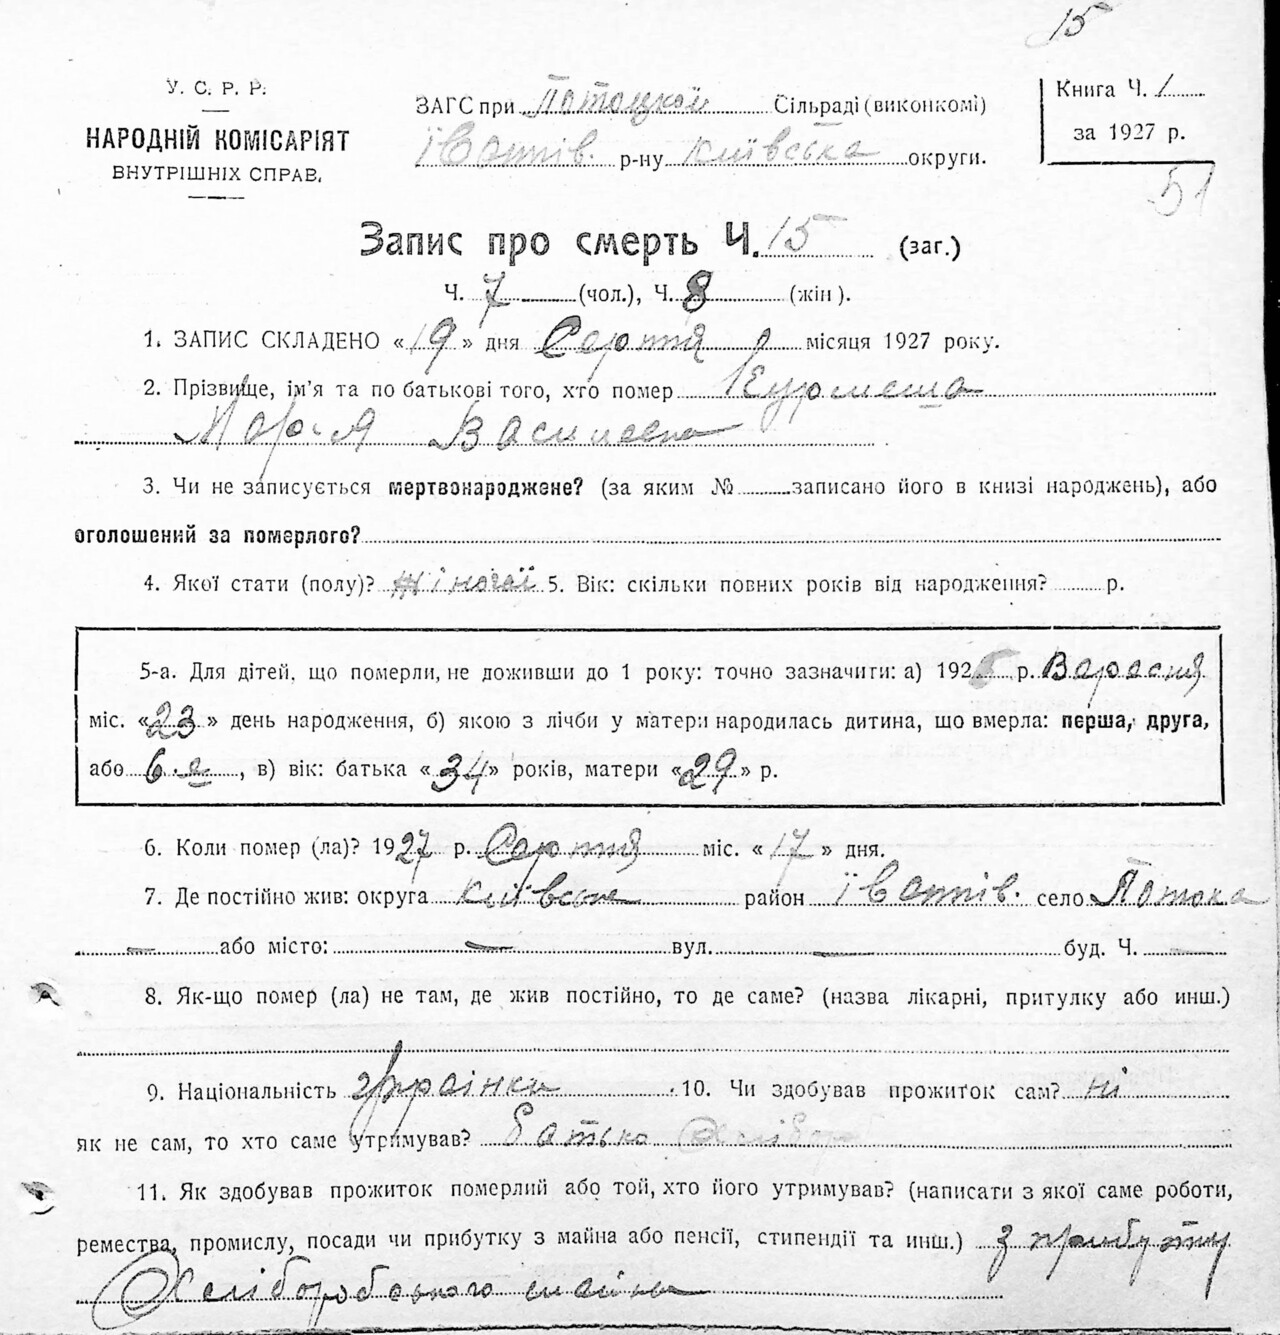 15
У. С. Р. Р.
НАРОДНІЙ КОМІСАРІЯТ
ВНУТРІШНІХ СПРАВ.
ЗАГС при Потоцкой Сільраді (виконкомі)
р-ну Київська округи.
Книга Ч. 1
за 1927 р.
51
Запис про смерть Ч. 15 (заг.)
Ч. 7 (чол.), Ч. 8 (жін).
1. ЗАПИС СКЛАДЕНО «19» дня Серпня місяця 1927 року.
2. Прізвище, ім'я та по батькові того, хто помер
Марія Василевна
3. Чи не записується мертвонароджене? (за яким № записано його в книзі народжень), або
оголошений за померлого?
4. Якої стати (полу)? жіночої 5. Вік: скільки повних років від народження? р.
5-а. Для дітей, що померли, не доживши до 1 року: точно зазначити: а) 1926 р. Вересня
міс. «23» день народження, б) якою з лічби у матери народилась дитина, що вмерла: перша, друга,
або 6-а, в) вік: батька «34» років, матери «29» р.
6. Коли помер (ла)? 1927 р. Серпня міс. «17» дня.
7. Де постійно жив: округа Київська район село Потока
або місто: — вул. — буд. Ч. —
8. Як-що помер (ла) не там, де жив постійно, то де саме? (назва лікарні, притулку або инш.)
9. Національність Українка 10. Чи здобував прожиток сам? ні
як не сам, то хто саме утримував? батько хлібороб
11. Як здобував прожиток померлий або той, хто його утримував? (написати з якої саме роботи,
ремества, промислу, посади чи прибутку з майна або пенсії, стипендії та инш.) з прибутку
Хліборобського майна